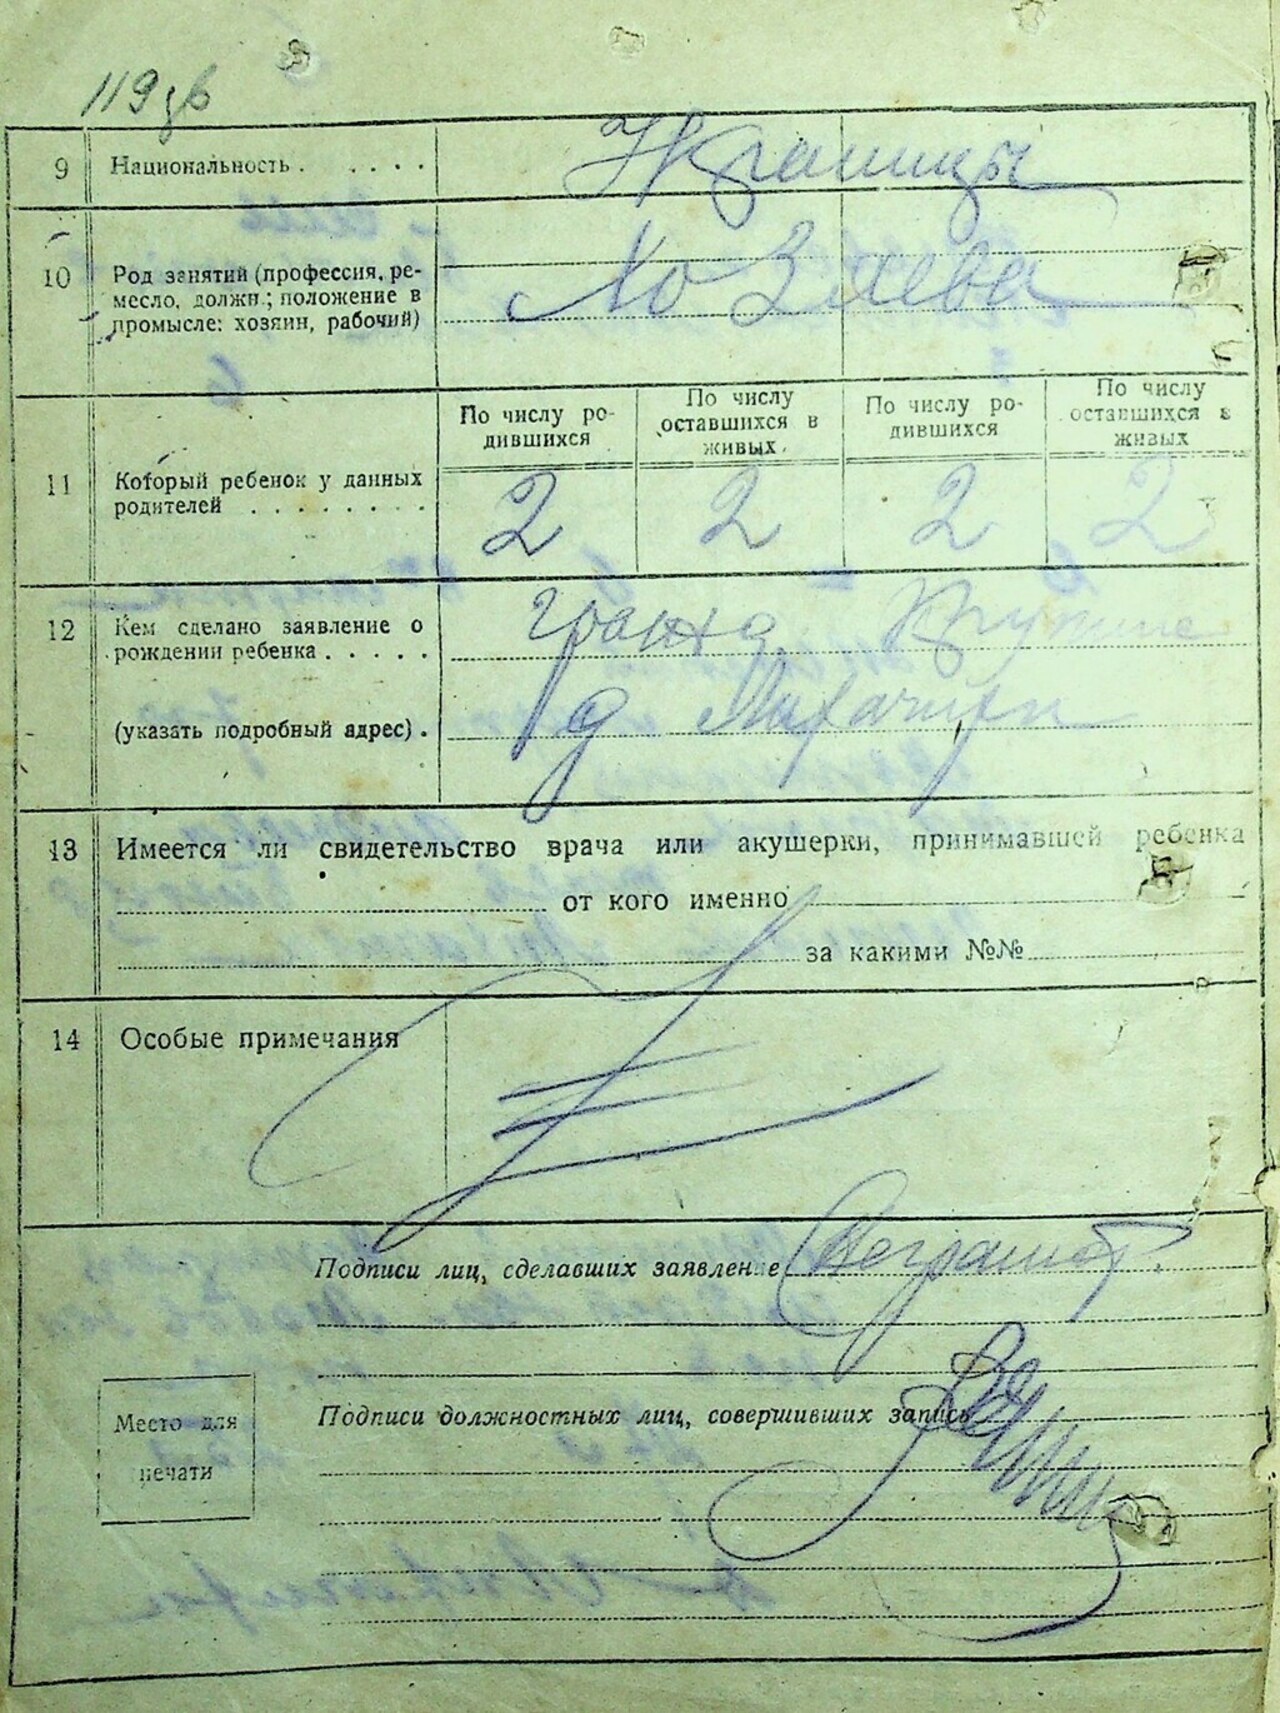 119 зв
9 Национальность . . . . . Украинцы
10 Род занятий (профессия, ре-
месло, должн.; положение в
промысле: хозяин, рабочий)
Хозяева
По числу ро-
дившихся
По числу
оставшихся в
живых.
По числу ро-
дившихся
По числу
оставшихся в
живых
11 Который ребенок у данных
родителей . . . . . . . .
2 2 2 2
12 Кем сделано заявление о
рождении ребенка . . . . .
(указать подробный адрес) .
13 Имеется ли свидетельство врача или акушерки, принимавшей ребенка
от кого именно
за какими №№
14 Особые примечания
Подписи лиц, сделавших заявление Неграмот.
Место для
печати
Подписи должностных лиц, совершивших запись